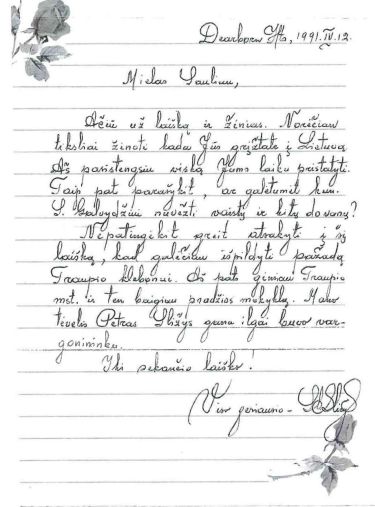 Dearborn Hts, 1991.IV.12.
Mielas Sauliau,
Ačiū už laišką ir žinias. Norėčiau
tiksliai žinoti kada Jūs grįžtate į Lietuvą.
Aš pasistengsiu viską Jums laiku pristatyti.
Taip pat parašykit, ar galėtumėt kun.
S. Galvydžiui nuvežti vaistų ir kitų dovanų?
Nepatingėkit greit atsakyti į šį
laišką, kad galėčiau išpildyti pažadą
Traupio klebonui. Aš pats gimiau Traupio
mst. ir ten baigiau pradžios mokyklą. Mano
tėvelis Petras Sližys gana ilgai buvo var-
gonininku.
Iki sekančio laiško!
Viso geriausio -